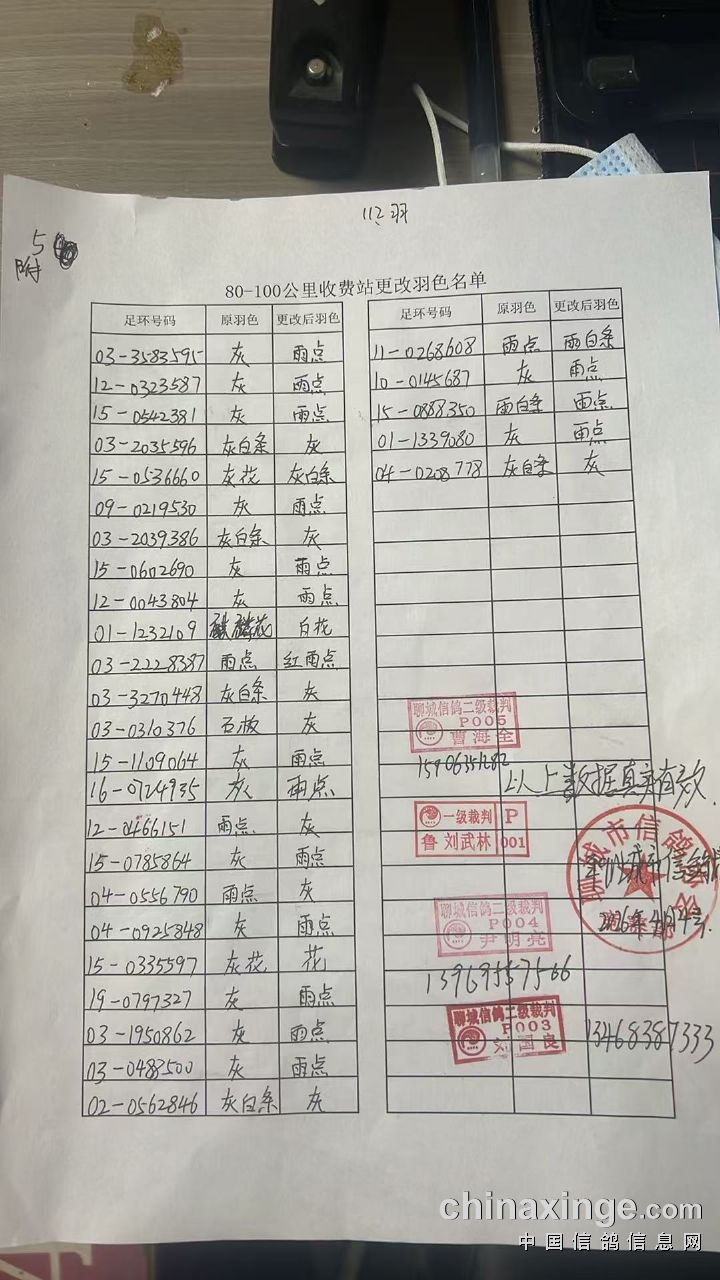 112羽
5
附
80-100公里收费站更改羽色名单
足环号码 原羽色 更改后羽色
03-3583595 灰 雨点
12-0323587 灰 雨点
15-0542381 灰 雨点
03-2035596 灰白条 灰
15-0536660 灰花 灰白条
09-0219530 灰 雨点
03-2039386 灰白条 灰
15-0602690 灰 雨点
12-0043804 灰 雨点
01-1232109 麒麟花 白花
03-2228387 雨点 红雨点
03-3270448 灰白条 灰
03-0310376 石板 灰
15-1109064 灰 雨点
16-0724935 灰 雨点
12-0466151 雨点 灰
15-0785864 灰 雨点
04-0556790 雨点 灰
04-0925848 灰 雨点
15-0335597 灰花 花
19-0797327 灰 雨点
03-1950862 灰 雨点
03-0483500 灰 雨点
02-0562846 灰白条 灰
足环号码 原羽色 更改后羽色
11-0268608 雨点 雨白条
10-0145687 灰 雨点
15-0888350 雨白条 雨点
01-1339080 灰 雨点
04-0208778 灰白条 灰
聊城信鸽二级裁判
P005
曹海全
15906351282
以上数据真实有效.
一级裁判 P
鲁 刘武林 001
聊城市信鸽
2026年4月4号.
聊城信鸽二级裁判
P004
尹明亮
13969557566
聊城信鸽二级裁判
P003
刘国良
13468387333
chinaxinge.com
中国信鸽信息网